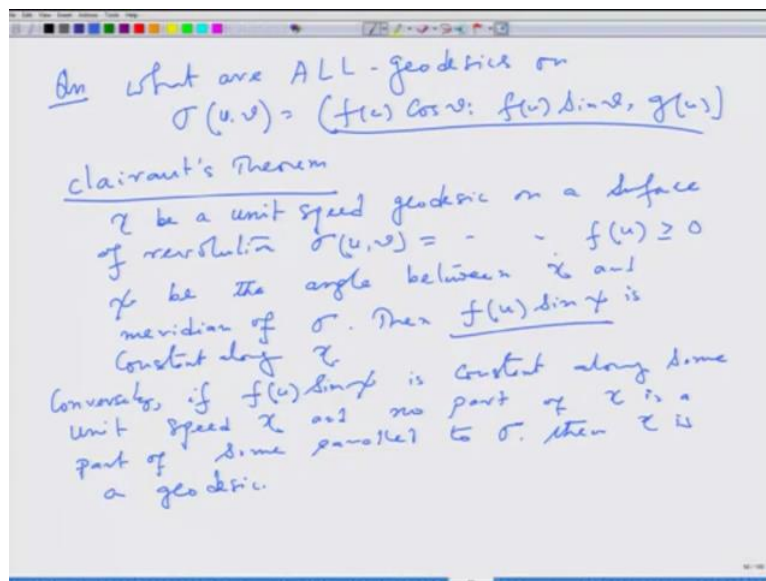 Qn what are ALL - geodesics on
σ(u,v) = (f(u) Cos v, f(u) Sin v, g(u))
Clairaut's Theorem
γ be a unit speed geodesic on a Surface
of revolution σ(u,v) = - - f(u) ≥ 0
ψ be the angle between γ̇ and
meridian of σ. Then f(u) Sin ψ is
Constant along γ
Conversely, if f(u) Sin ψ is constant along some
unit speed γ and no part of γ is a
part of some parallel to σ. then γ is
a geodesic.